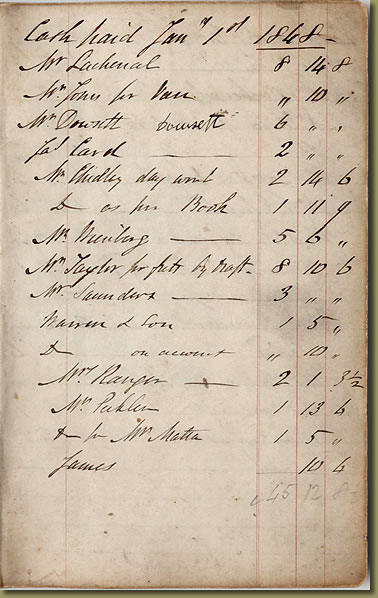 Cash paid Jany 1st 1848-
Mr Lachenal 8 14 8
Mr Jones for Van „ 10 „
Mr Dowsett Dowsett 6 „ „
Jas Card — 2 „ „
Mr Chidley day work 2 14 6
Do as per Book 1 11 9
Mr Nieiberg — 5 6 „
Mr Taylor for by draft- 8 10 6
Mr Saunders — 3 „ „
Warren & Son 1 5 „
Do on account „ 10 „
Mrs Ranger — 2 1 3½
Mr Pichler 1 13 6
Do for Mr Matta 1 5 „
James 10 6
45 12 8